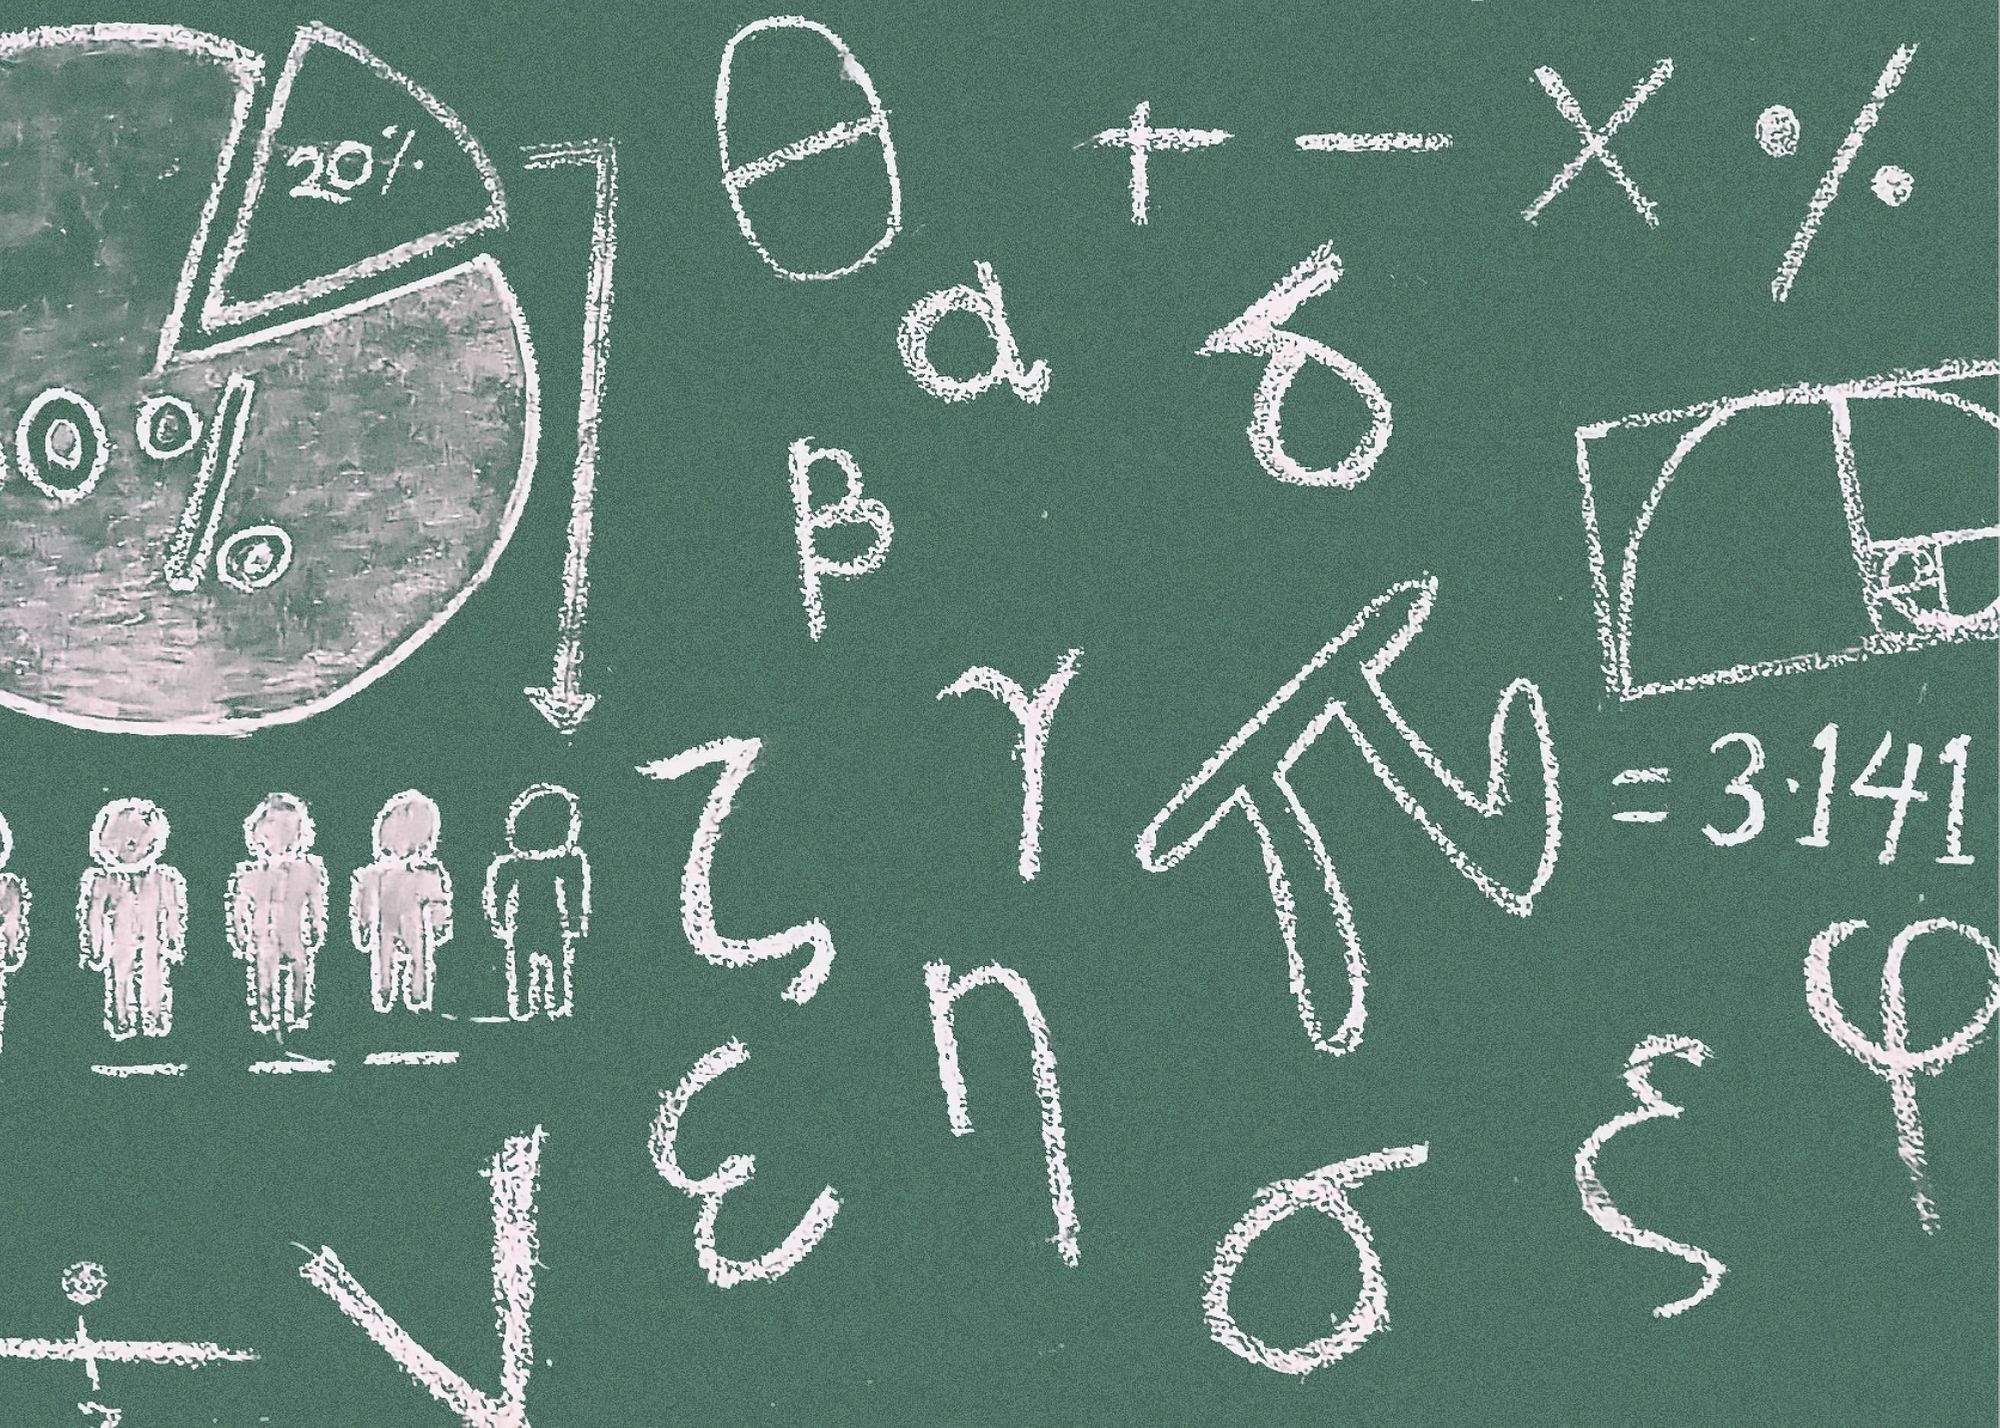 20%
θ + − × %
α δ
0%
β
γ π = 3·141
ζ
η φ
ε σ ξ